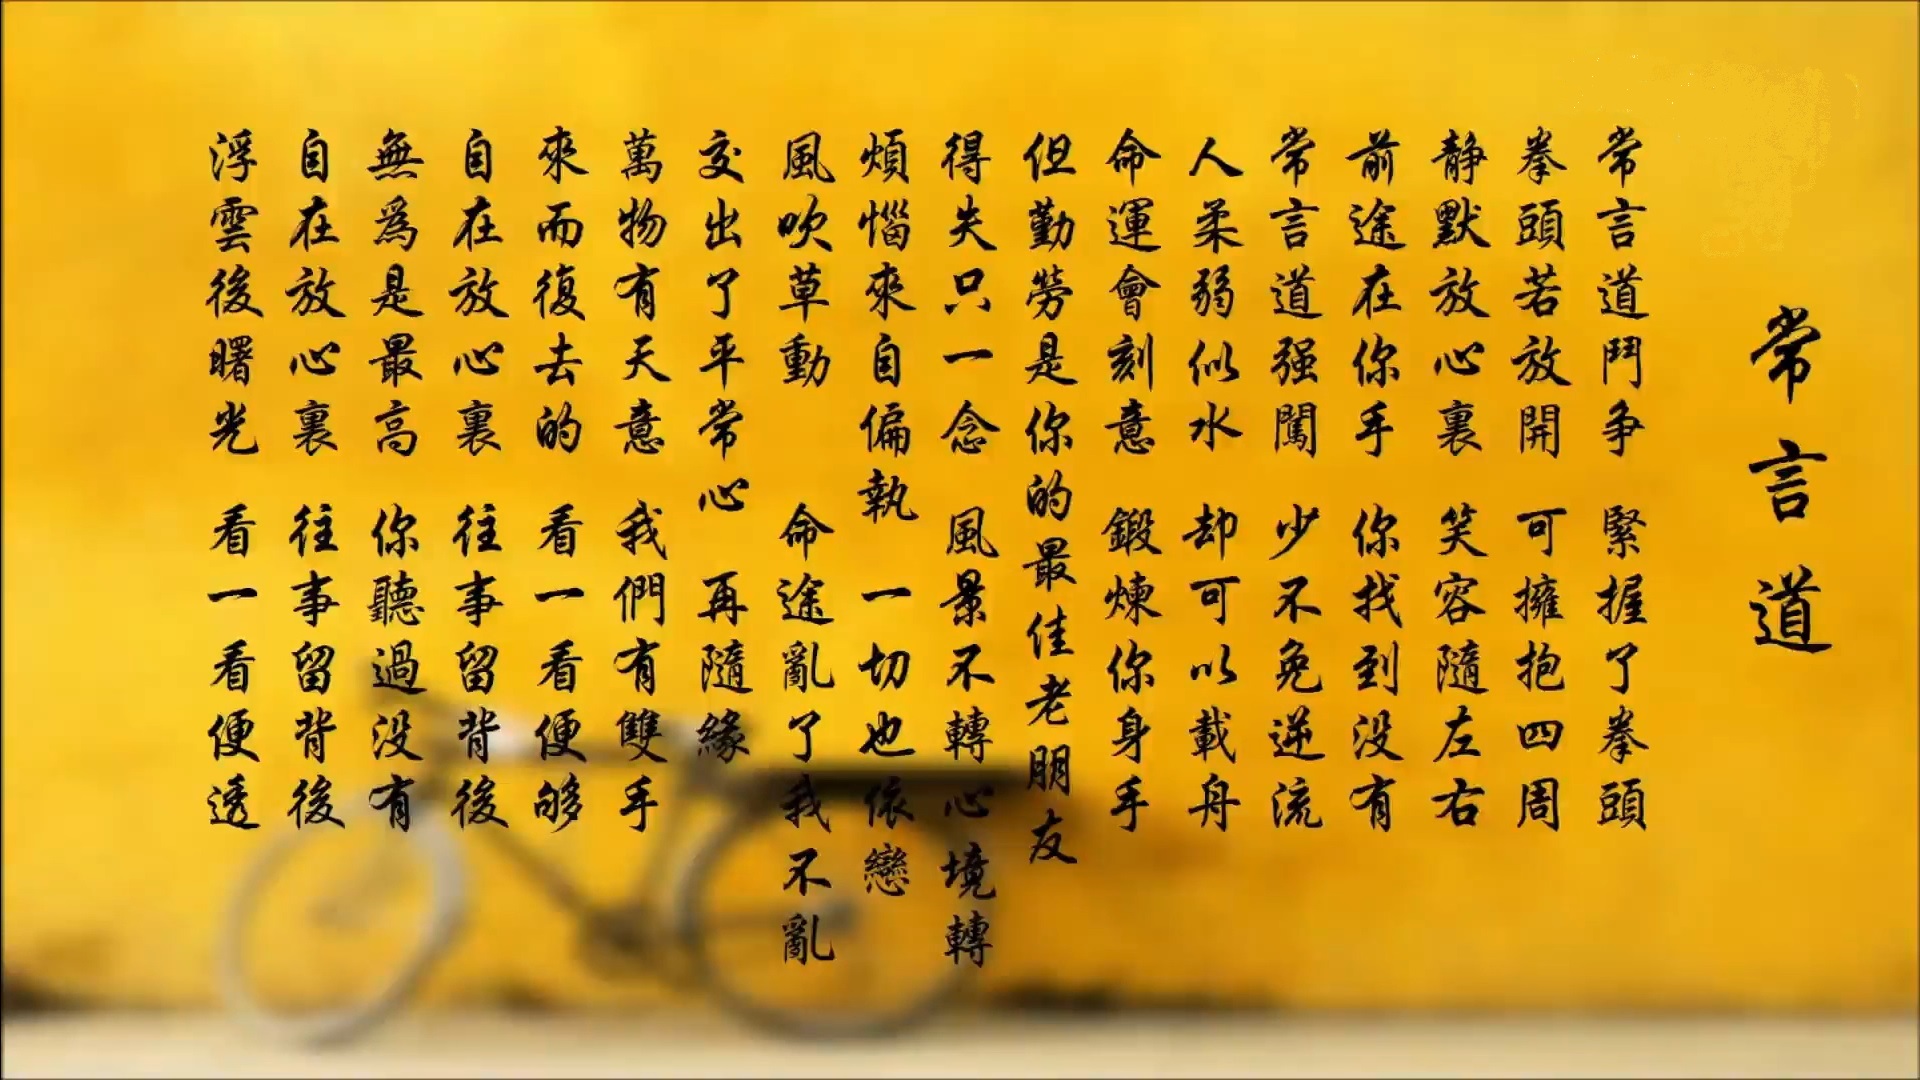 常言道
常言道鬥争 緊握了拳頭
拳頭若放開 可擁抱四周
静默放心裏 笑容隨左右
前途在你手 你找到没有
常言道强闖 少不免逆流
人柔弱似水 却可以載舟
命運會刻意 鍛煉你身手
但勤勞是你的最佳老朋友
得失只一念 風景不轉心境轉
煩惱來自偏執 一切也依戀
風吹草動 命途亂了我不亂
交出了平常心 再隨緣
萬物有天意 我們有雙手
來而復去的 看一看便够
自在放心裏 往事留背後
無爲是最高 你聽過没有
自在放心裏 往事留背後
浮雲後曙光 看一看便透